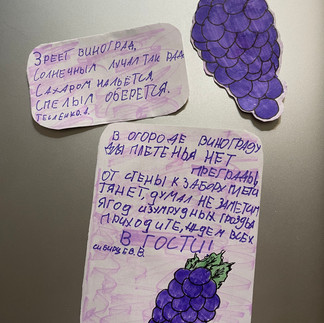 ЗРЕЕТ ВИНОГРАД,
СОЛНЕЧНЫМ ЛУЧАМ ТАК РАД,
САХАРОМ НАЛЬЁТСЯ,
СПЕЛЫЙ ОБЕРЁТСЯ.
ТЕБЛЕНКО.А.
В ОГОРОДЕ ВИНОГРАДУ
ДЛЯ ПЛЕТЕНЬЯ НЕТ
ПРЕГРАДЫ!
ОТ СТЕНЫ К ЗАБОРУ ПЛЕТИ
ТЯНЕТ, ДУМАЛ НЕ ЗАМЕТИМ
ЯГОД ИЗУМРУДНЫХ ГРОЗДЬЯ
ПРИХОДИТЕ, ЖДЕМ ВСЕХ
В ГОСТИ!
СИБИРЦЕВ.В.